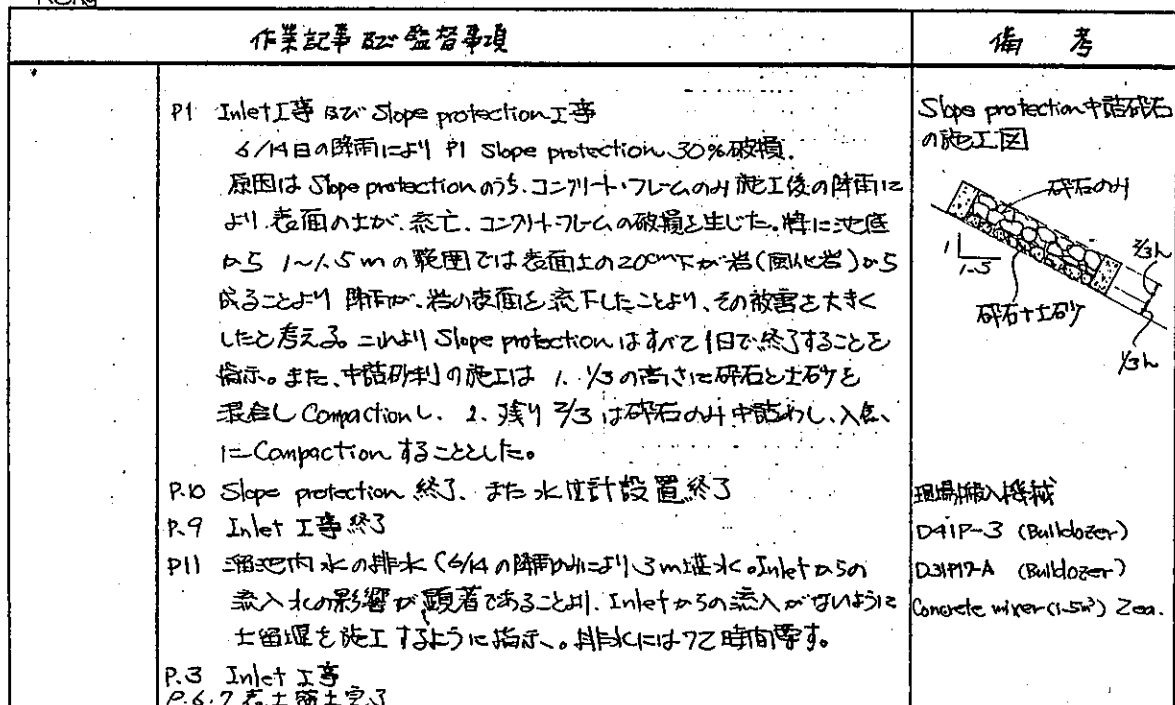 作業記事及び監督事項
備考
P1 Inlet工事及びSlope protection工事
6/14日の降雨により P1 Slope protection 30%破損.
原因は Slope protectionのうち、コンクリート・フレームのみ施工後の降雨に
より、表面の土が、流亡、コンクリートフレームの破損を生じた。特に池底
から 1~1.5mの範囲では表面土の20cm下が岩(風化岩)から
成ることより 降雨が、岩の表面を流下したことより、その被害を大きく
したと考える。これより Slope protectionはすべて1日で終了することを
指示。また、中詰砂利の施工は 1. 1/3の高さに砕石と土砂を
混合し Compactionし、 2. 残り 2/3は砕石のみ中詰めし、入念
に Compactionすることとした。
P.10 Slope protection 終了、また水位計設置終了
P.9 Inlet工事終了
P11 溜池内水の排水 (6/14の降雨により、3m湛水。Inletからの
流入水の影響が顕著であることより、Inletからの流入がないように
土留堰を施工するように指示。排水には72時間要す。
P.3 Inlet工事
P.6.7 表土盛土完了
Slope protection中詰砕石
の施工図
砕石のみ
2/3h
1
1.5
砕石+土砂
1/3h
現場搬入機械
D41P-3 (Bulldozer)
D31P17-A (Bulldozer)
Concrete mixer(1.5m³) 2ea.